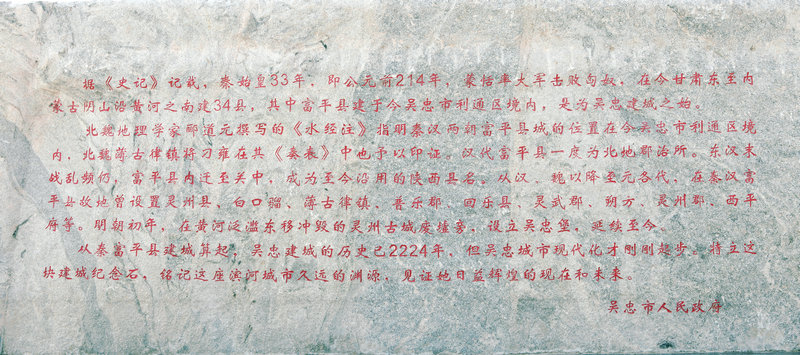 据《史记》记载，秦始皇33年，即公元前214年，蒙恬率大军击败匈奴，在今甘肃东至内
蒙古阴山沿黄河之南建34县，其中富平县建于今吴忠市利通区境内，是为吴忠建城之始。
北魏地理学家郦道元撰写的《水经注》指明秦汉两朝富平县城的位置在今吴忠市利通区境
内，北魏薄古律镇将刁雍在其《奏表》中也予以印证。汉代富平县一度为北地郡治所。东汉末
战乱频仍，富平县内迁至关中，成为至今沿用的陕西县名。从汉、魏以降至元各代，在秦汉富
平县故地曾设置灵州县、白口骝、薄古律镇、普乐郡、回乐县、灵武郡、朔方、灵州郡、西平
府等。明朝初年，在黄河泛滥东移冲毁的灵州古城废墟旁，设立吴忠堡，延续至今。
从秦富平县建城算起，吴忠建城的历史已2224年，但吴忠城市现代化才刚刚起步。特立这
块建城纪念石，铭记这座滨河城市久远的渊源，见证她日益辉煌的现在和未来。
吴忠市人民政府